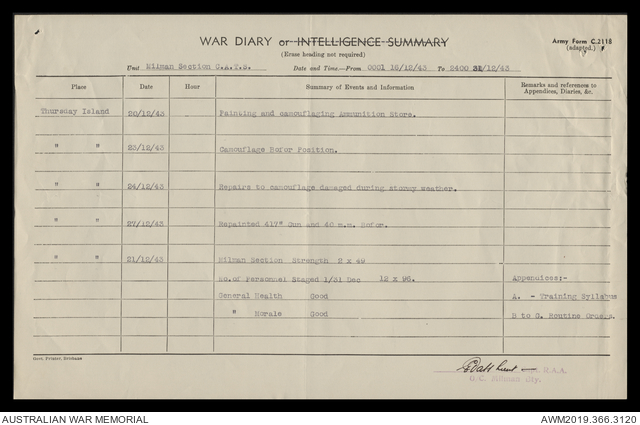 WAR DIARY or INTELLIGENCE SUMMARY
Army Form C.2118
(Erase heading not required)
(adapted.)
Unit Milman Section C.A.T.S. Date and Time—From 0001 16/12/43 To 2400 31/12/43
Place Date Hour Summary of Events and Information Remarks and references to Appendices, Diaries, &c.
Thursday Island 20/12/43 Painting and camouflaging Ammunition Store.
" " 23/12/43 Camouflage Bofor Position.
" " 24/12/43 Repairs to camouflage damaged during stormy weather.
" " 27/12/43 Repainted 4.7" Gun and 40 m.m. Bofor.
" " 21/12/43 Milman Section Strength 2 x 49
No. of Personnel Staged 1/31 Dec 12 x 96. Appendices:-
General Health Good A. - Training Syllabus
" Morale Good B to G. Routine Orders.
Govt. Printer, Brisbane
Lieut R.A.A.
O.C.
AUSTRALIAN WAR MEMORIAL AWM2019.366.3120